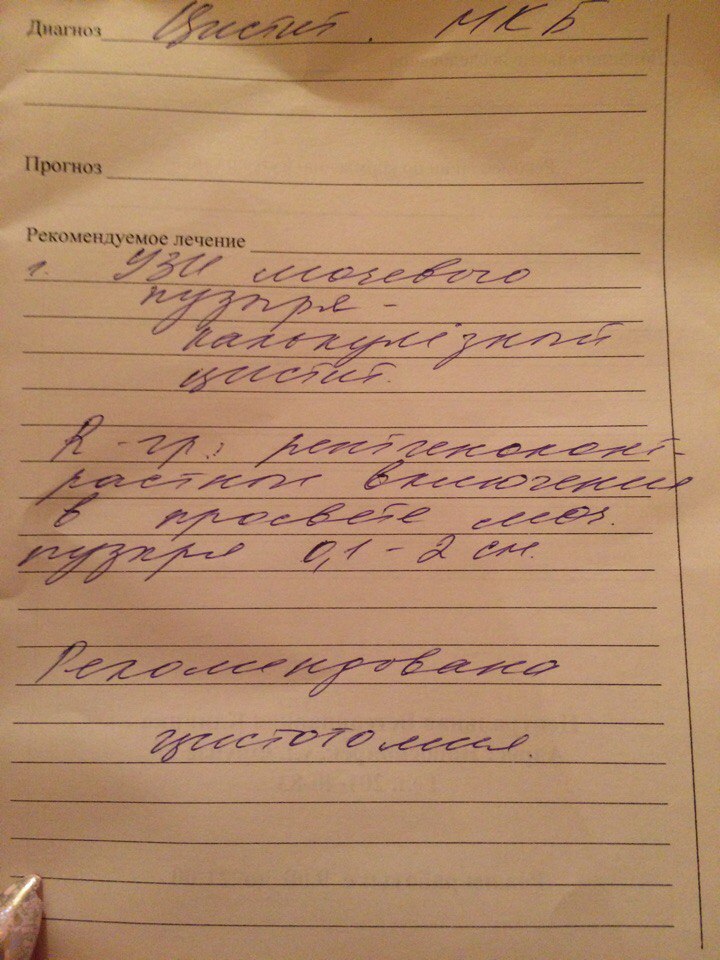 Диагноз Цистит. МКБ
Прогноз
Рекомендуемое лечение
1. УЗИ мочевого
пузыря -
калькулёзный
цистит.
R-гр: рентгеноконт-
растные включения
в просвете моч.
пузыря 0,1 - 2 см.
Рекомендована
цистотомия.